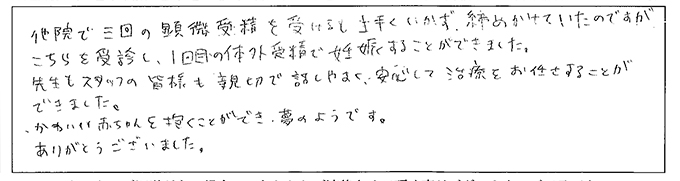 他院で三回の顕微受精を受けるも上手くいかず、締めかけていたのですが
こちらを受診し、1回目の体外受精で妊娠することができました。
先生もスタッフの皆様も親切で話しやすく、安心して治療をお任せすることが
できました。
かわいい赤ちゃんを抱くことができ、夢のようです。
ありがとうございました。